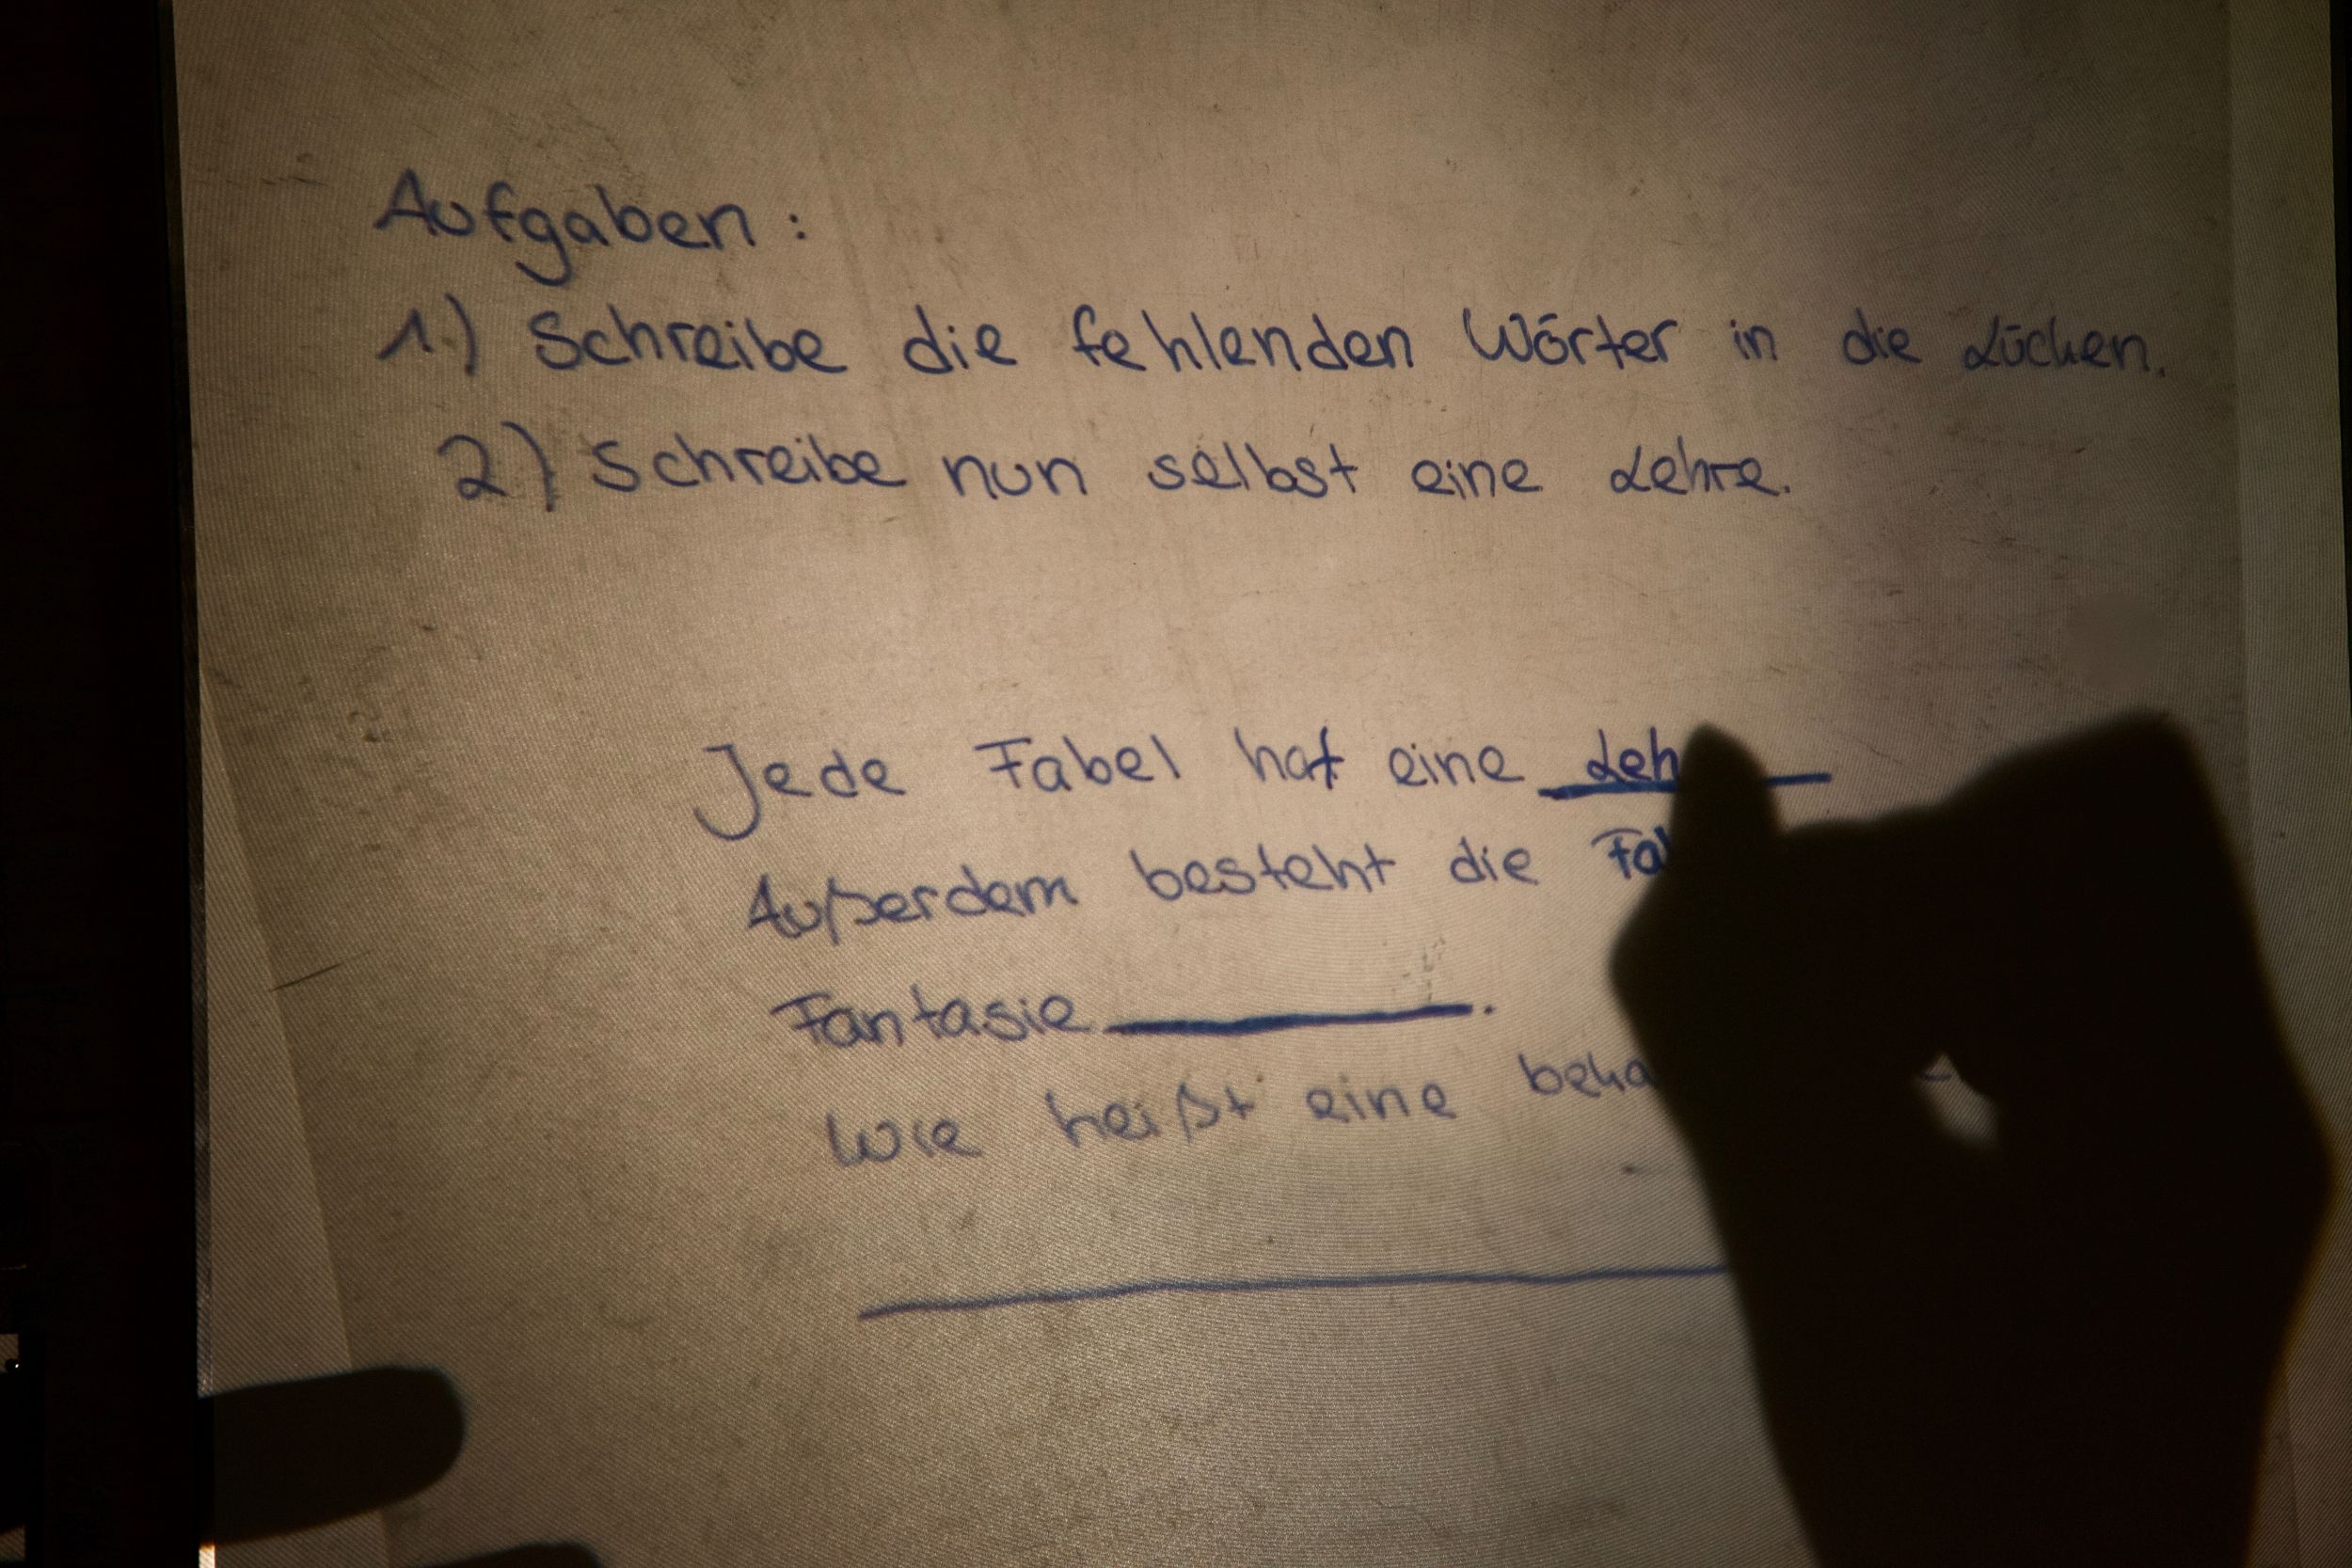 Aufgaben:
1.) Schreibe die fehlenden Wörter in die Lücken.
2) Schreibe nun selbst eine Lehre.
Jede Fabel hat eine Leh
Außerdem besteht die
Fantasie ________.
Wie heißt eine